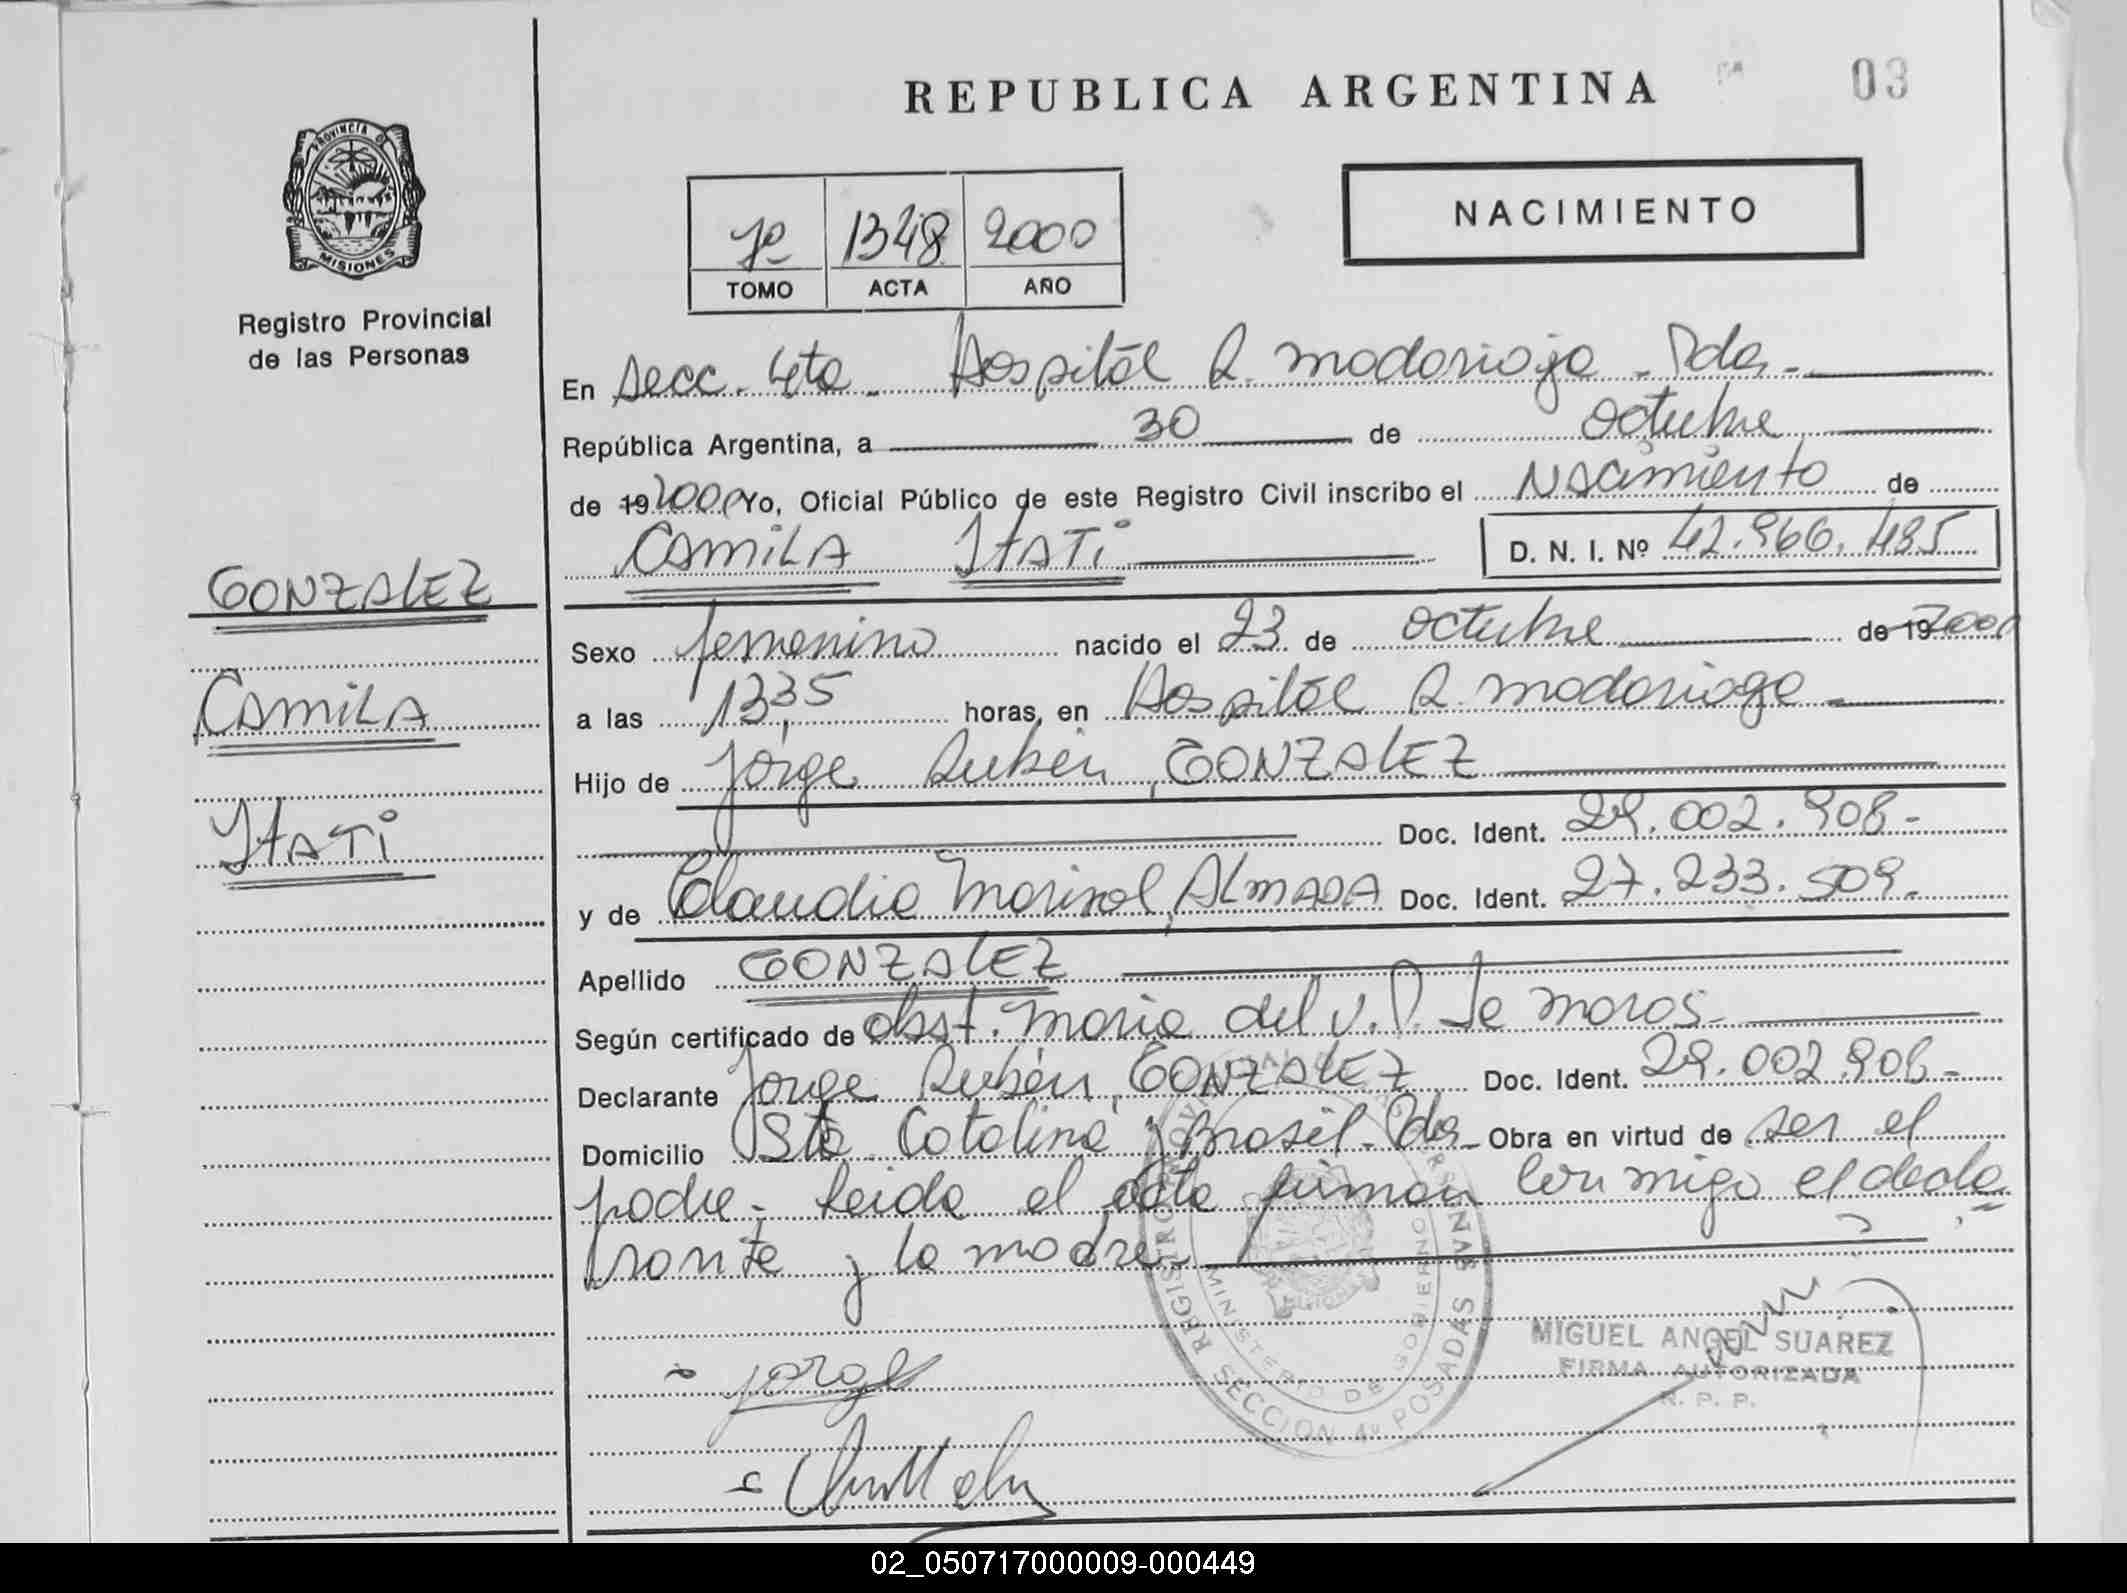 REPUBLICA ARGENTINA
03
PROVINCIA DE
MISIONES
Registro Provincial
de las Personas
7º 1348 2000
TOMO ACTA AÑO
NACIMIENTO
En Secc. 4ta - Hospital R. Madariaga - Pdas -
República Argentina, a 30 de octubre
de 19 2000 Yo, Oficial Público de este Registro Civil inscribo el Nacimiento de
CAMILA ITATI
D. N. I. Nº 42.966.485
GONZALEZ
CAMILA
ITATI
Sexo femenino nacido el 23 de octubre de 19 2000
a las 13,35 horas, en Hospital R. Madariaga -
Hijo de Jorge Rubén, GONZALEZ
Doc. Ident. 29.002.908 -
y de Claudia Marisol, ALMADA Doc. Ident. 27.233.509 -
Apellido GONZALEZ
Según certificado de obst. Maria del V. P. de Moros -
Declarante Jorge Rubén, GONZALEZ Doc. Ident. 29.002.908 -
Domicilio Sta Catalina y Brasil - Pdas - Obra en virtud de ser el
padre - Leida el acta firman conmigo el decla
rante y la madre -
REGISTRO PROVINCIAL DE LAS PERSONAS
MINISTERIO DE GOBIERNO
SECCION 4º POSADAS
MISIONES
MIGUEL ANGEL SUAREZ
FIRMA AUTORIZADA
R. P. P.
Jorge
02_050717000009-000449